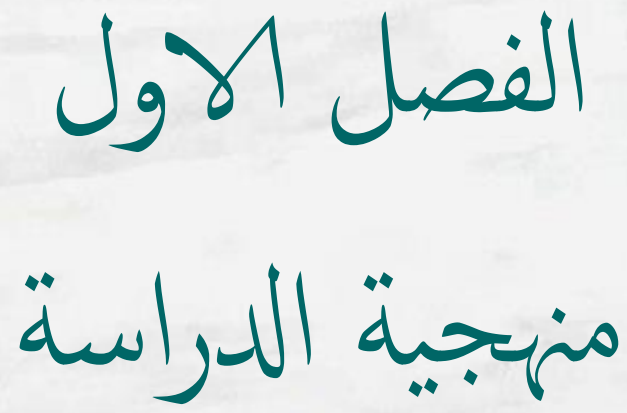 الفصل الاول
منهجية الدراسة